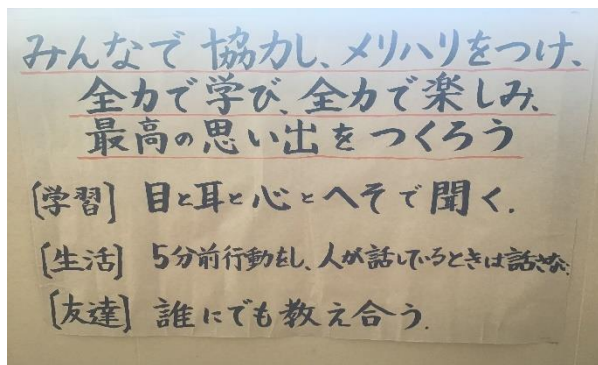 みんなで協力し、メリハリをつけ、
全力で学び、全力で楽しみ、
最高の思い出をつくろう
[学習] 目と耳と心とへそで聞く.
[生活] 5分前行動をし、人が話しているときは話さない.
[友達] 誰にでも教え合う.